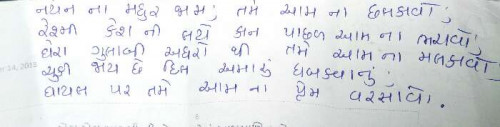 નયન ના મધુર જામ; તમે આમ ના છલકાવો;
રેશ્મી કેશ ની લટો કાન પાછળ આમ ના ભરાવો;
ઘેરા ગુલાબી અધરો થી તમે આમ ના મલકાવો
ચુકી જાય છે દિલ અમારું ધબકવાનું;
ઘાયલ પર તમે આમ ના પ્રેમ વરસાવો.